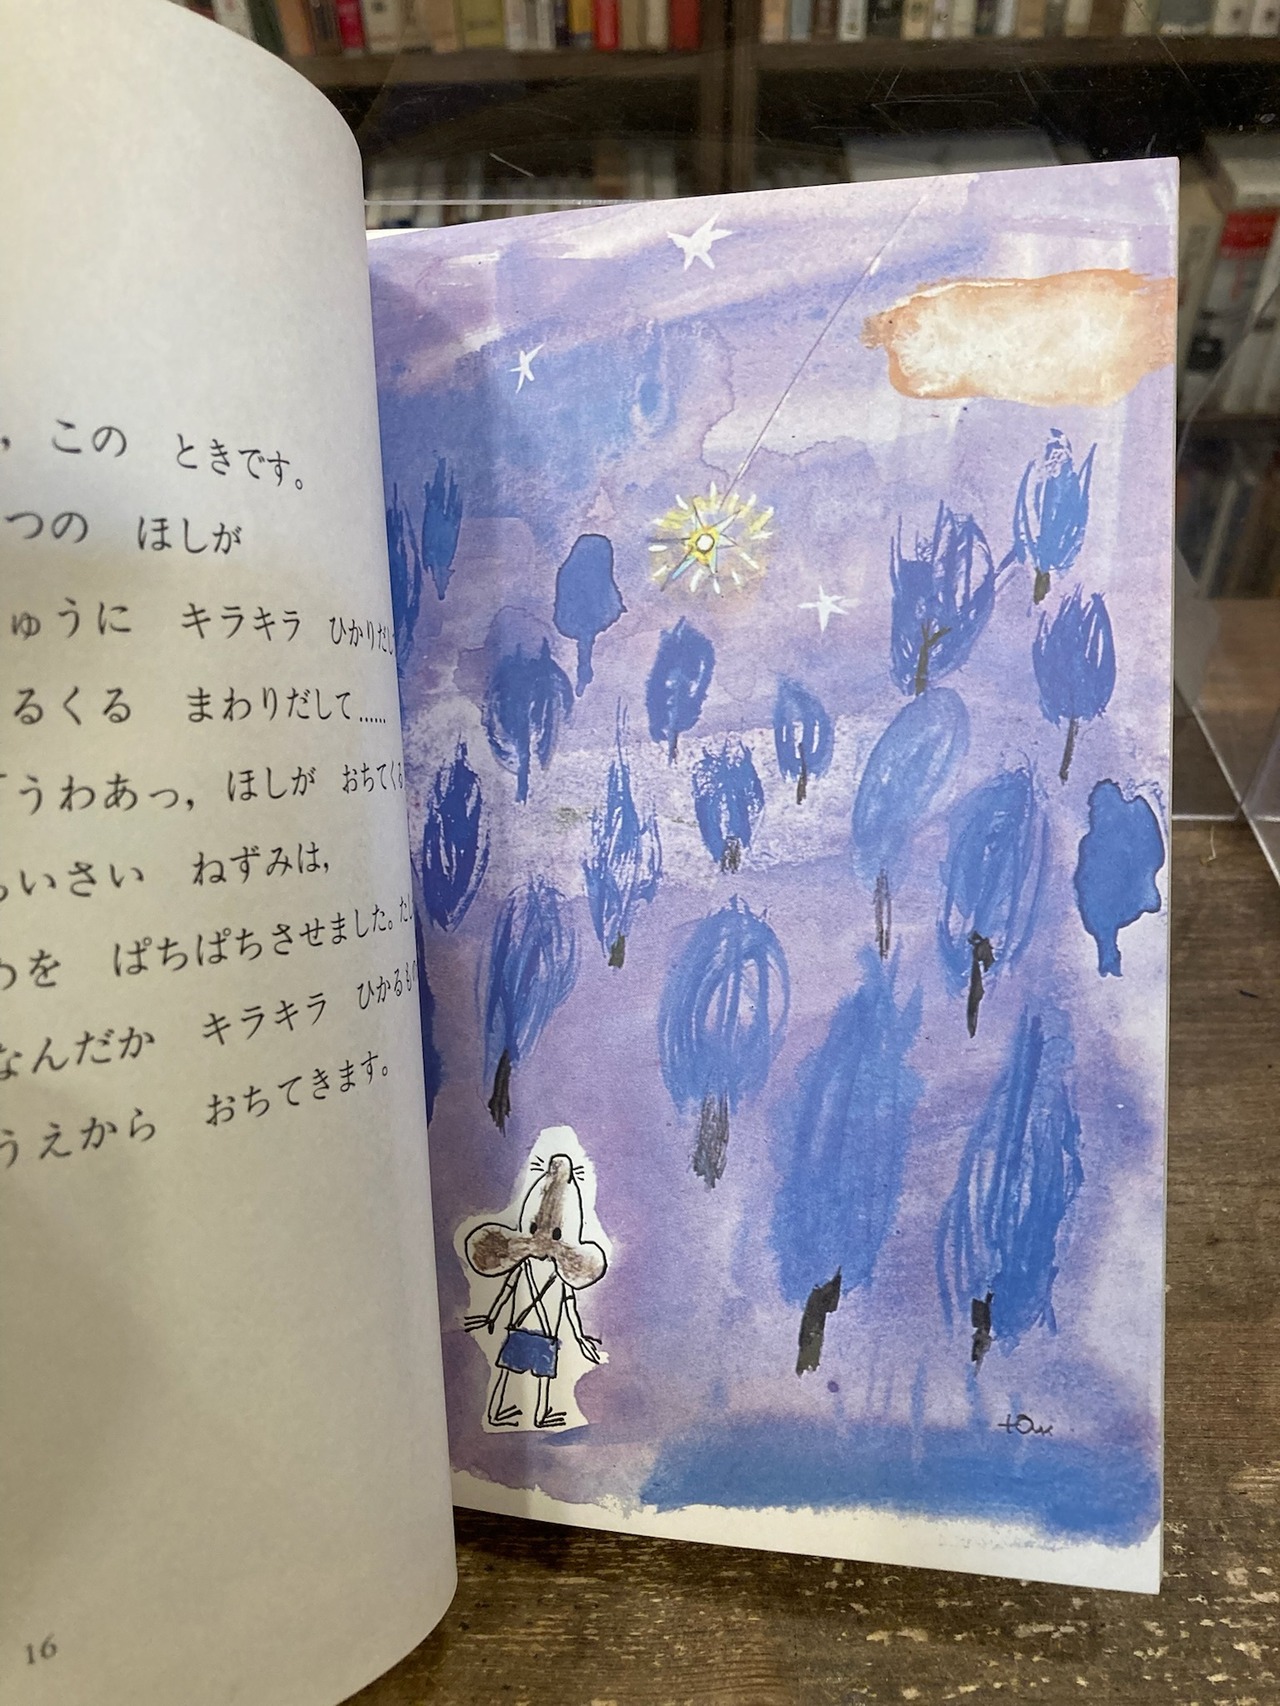 ，この　ときです。
つの　ほしが
ゅうに　キラキラ　ひかりだし
るくる　まわりだして……
うわあっ，ほしが　おちてくる
いさい　ねずみは，
を　ぱちぱちさせました。たし
なんだか　キラキラ　ひかるもの
うえから　おちてきます。
16